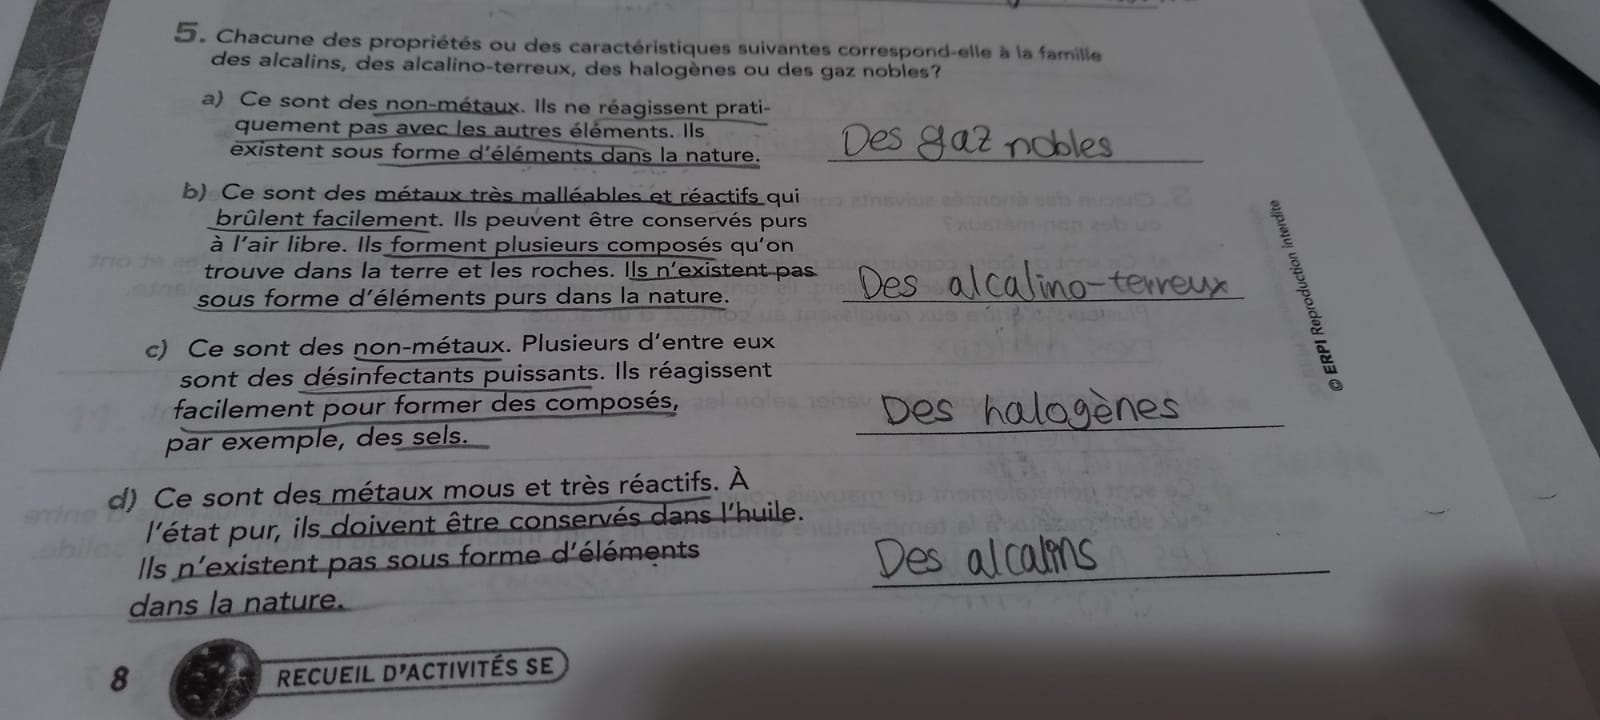 5. Chacune des propriétés ou des caractéristiques suivantes correspond-elle à la famille
des alcalins, des alcalino-terreux, des halogènes ou des gaz nobles?
a) Ce sont des non-métaux. Ils ne réagissent prati-
quement pas avec les autres éléments. Ils
existent sous forme d'éléments dans la nature.
Des gaz nobles
b) Ce sont des métaux très malléables et réactifs qui
brûlent facilement. Ils peuvent être conservés purs
à l'air libre. Ils forment plusieurs composés qu'on
trouve dans la terre et les roches. Ils n'existent pas
sous forme d'éléments purs dans la nature.
Des alcalino-terreux
c) Ce sont des non-métaux. Plusieurs d'entre eux
sont des désinfectants puissants. Ils réagissent
facilement pour former des composés,
par exemple, des sels.
Des halogènes
d) Ce sont des métaux mous et très réactifs. À
l'état pur, ils doivent être conservés dans l'huile.
Ils n'existent pas sous forme d'éléments
dans la nature.
Des alcalins
© ERPI Reproduction interdite
8
RECUEIL D'ACTIVITÉS SE